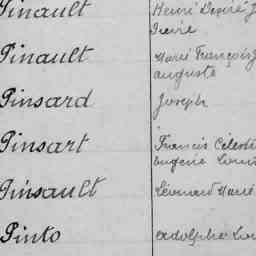 Pinault Henri Désiré J
Pierre
Pinault Marie François J
auguste
Pinsard Joseph
Pinsart Francis Célest
Eugène Louis
Pinsault Léonard Marie
Pinto adolphe Lou